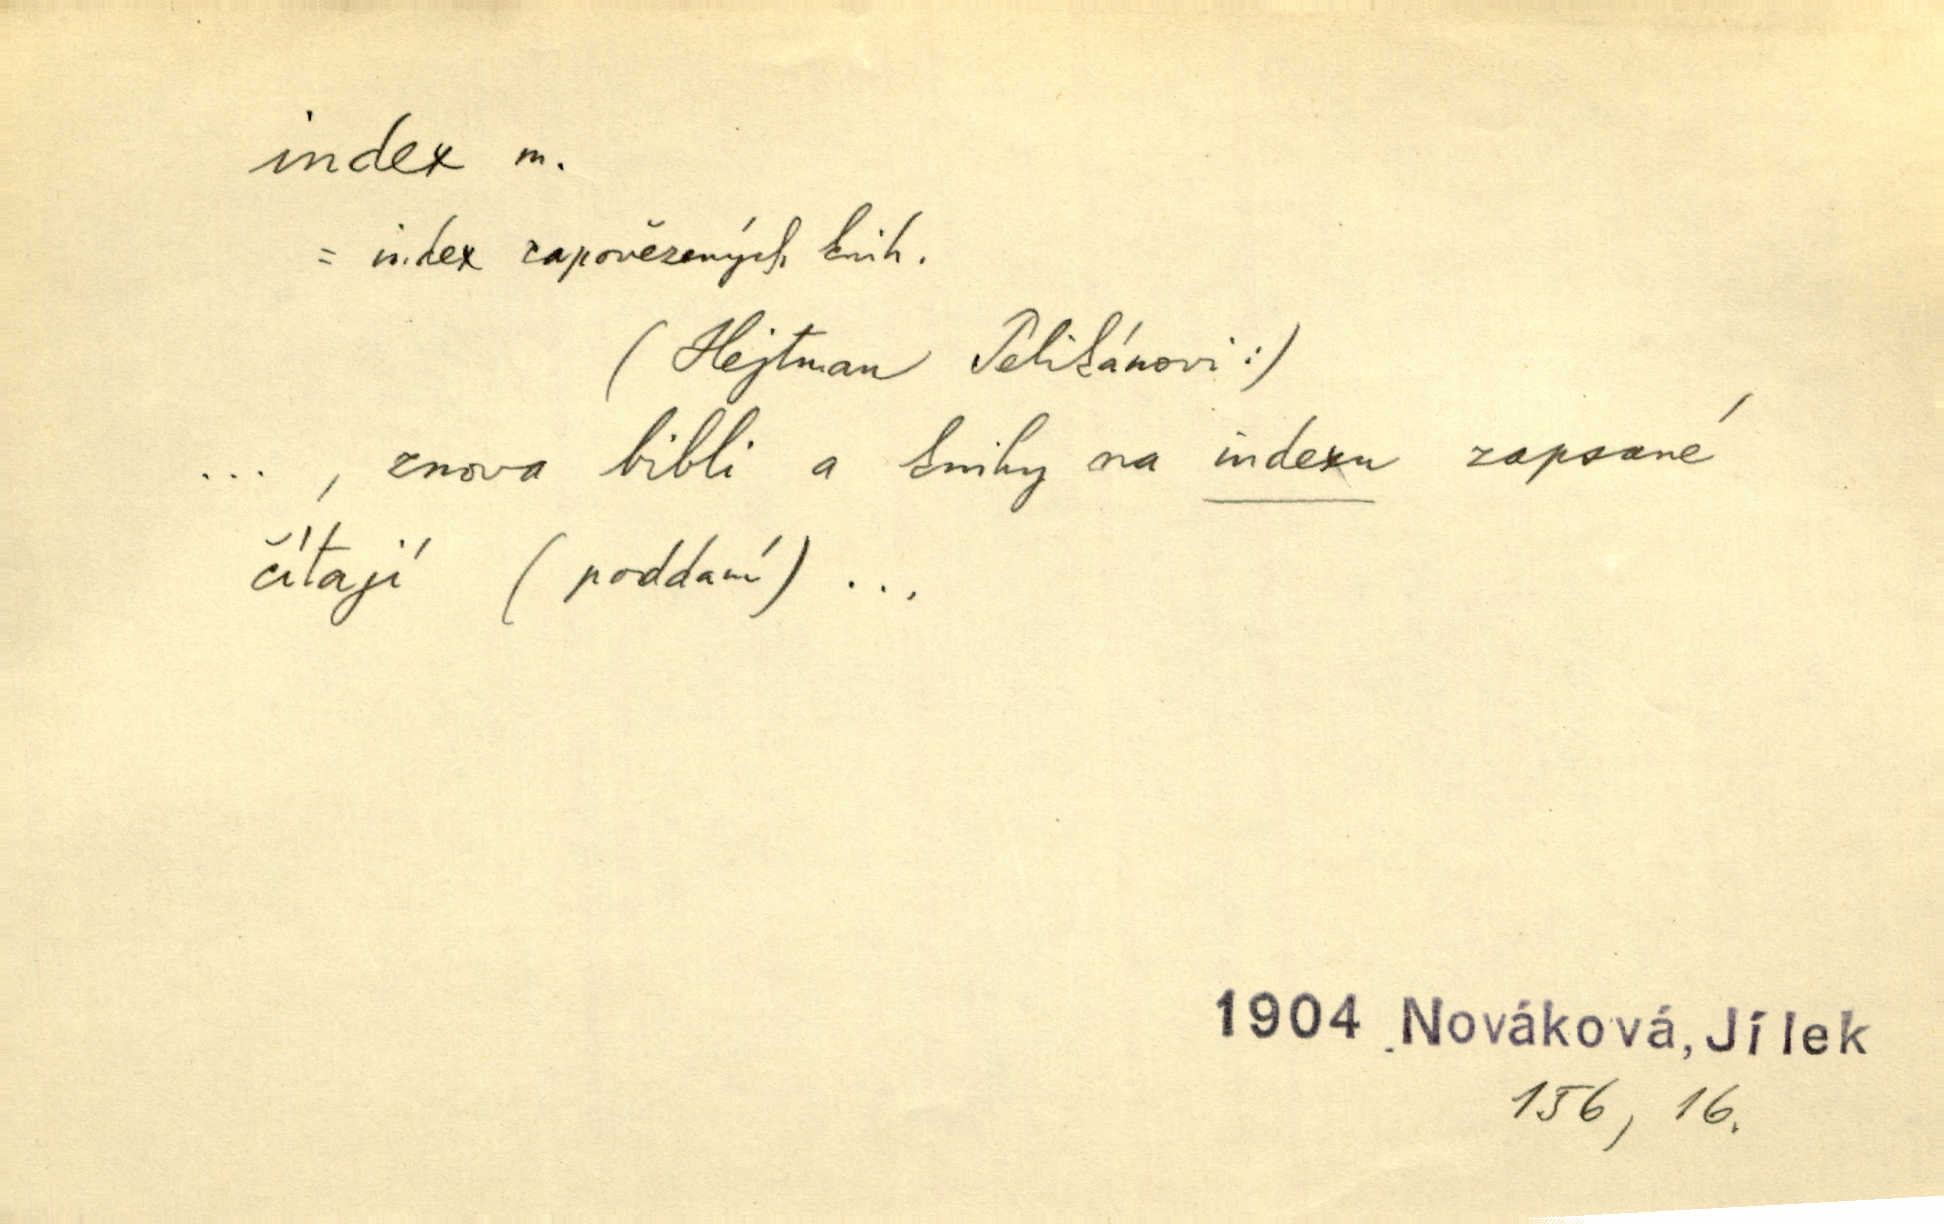 index m.
= index zapovězených knih.
(Hejtman Pelikánovi:)
..., znova bibli a knihy na indexu zapsané
čítají (poddaní) ...
1904 Nováková, Jílek
156, 16.